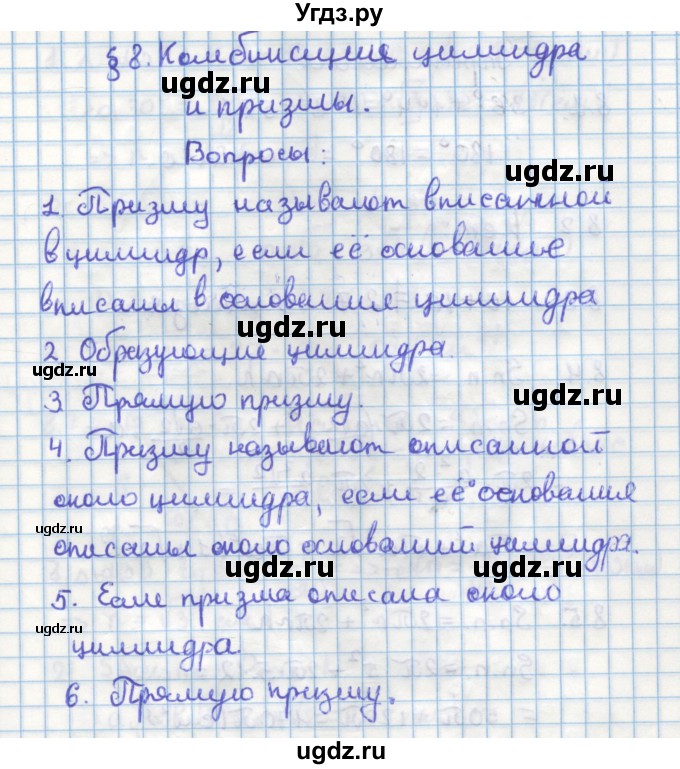 Угдз.ру
§ 8. Комбинация цилиндра
ugdz.ru
и призмы.
Вопросы:
ugdz.ru
1 Призму называют вписанной
в цилиндр, если её основание
вписаны в основания цилиндра
ugdz.ru
2. Образующие цилиндра.
ugdz.ru
3 Прямую призму.
ugdz.ru
4. Призму называют описанной
около цилиндра, если её основания
ugdz.ru
описаны около оснований цилиндра.
ugdz.ru
ugdz.ru
5. Если призма описана около
ugdz.ru
цилиндра.
6. Прямую призму.
ugdz.ru